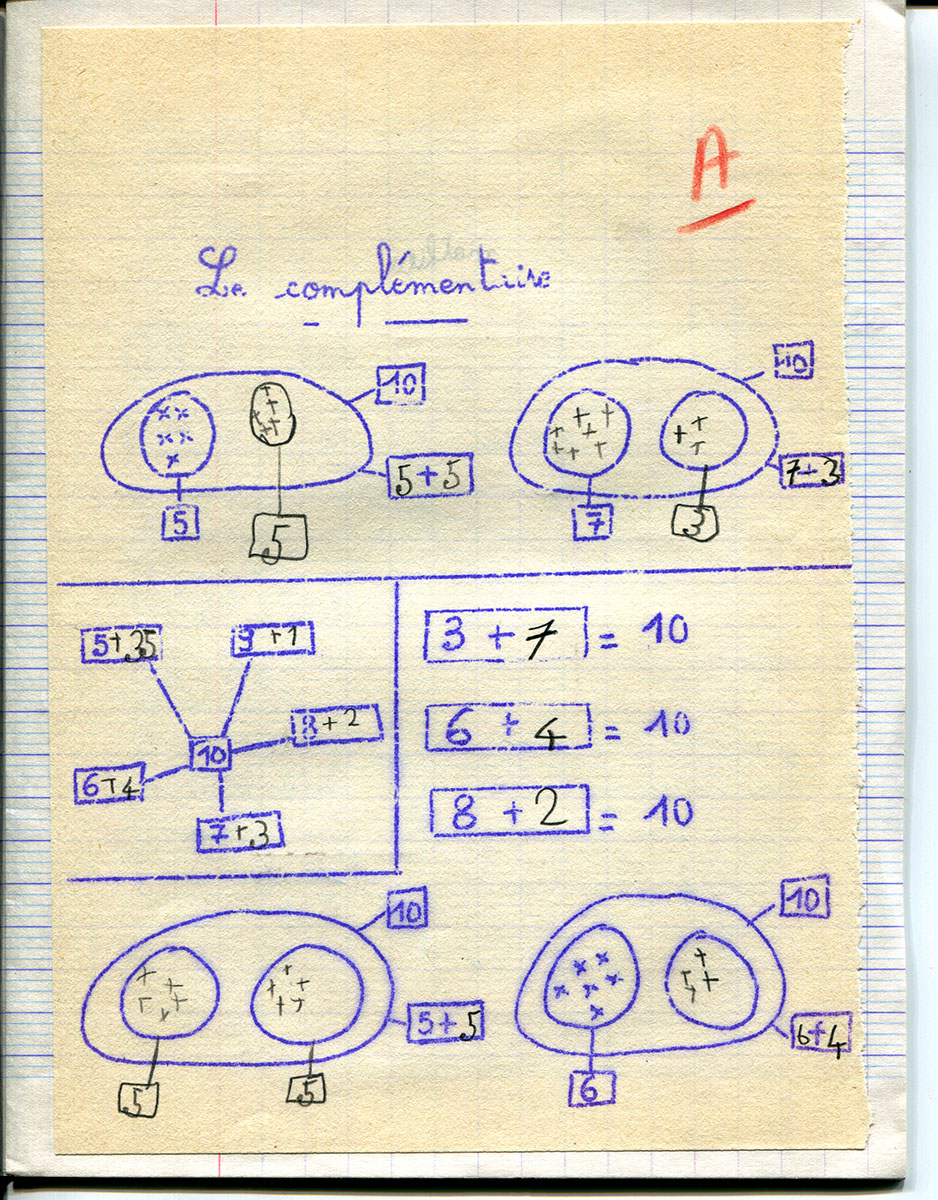 A
Le complémentaire
10
10
5+5
7+3
5
5
7
3
5+35
9+1
3+7 = 10
8+2
6+4 = 10
10
6+4
7+3
8+2 = 10
10
10
5+5
6+4
5
5
6